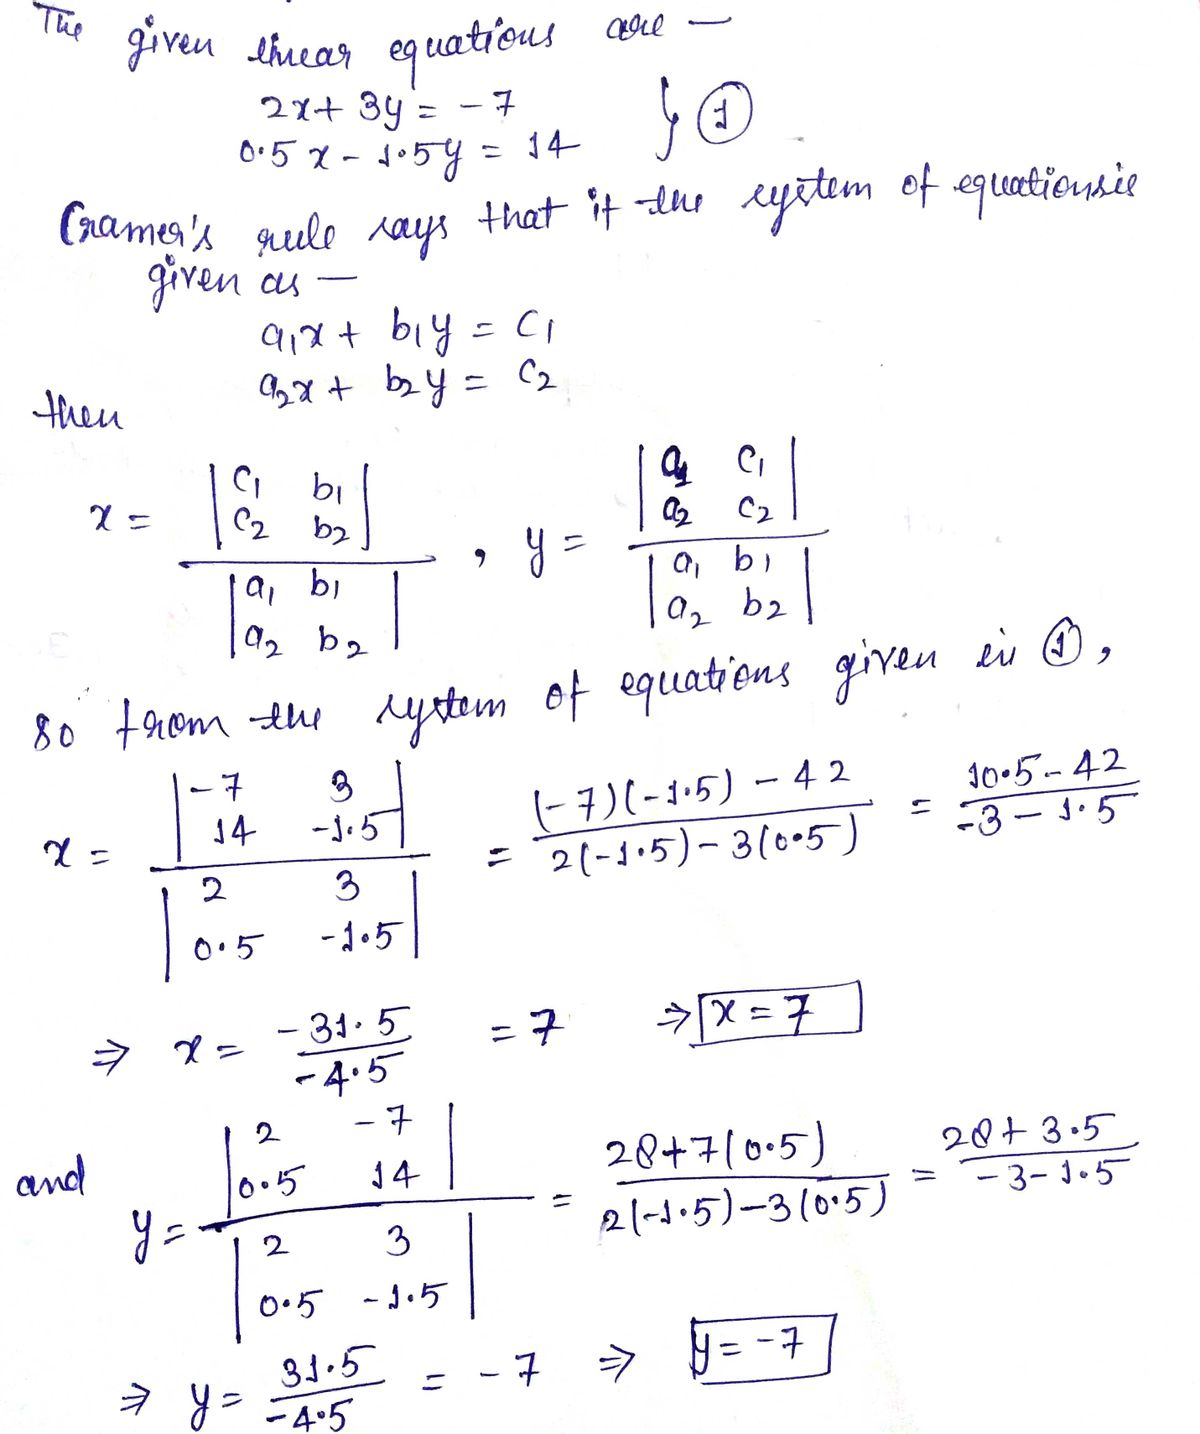 The given linear equations are —
2x + 3y = - 7
0.5 x - 1.5y = 14 } ①
Cramer's rule says that if the system of equations is
given as —
a₁x + b₁y = c₁
a₂x + b₂y = c₂
then
x = |c₁ b₁; c₂ b₂| / |a₁ b₁; a₂ b₂| , y = |a₁ c₁; a₂ c₂| / |a₁ b₁; a₂ b₂|
so from the system of equations given in ①,
x = |-7 3; 14 -1.5| / |2 3; 0.5 -1.5| = ((-7)(-1.5) - 42) / (2(-1.5) - 3(0.5)) = (10.5 - 42) / (-3 - 1.5)
⇒ x = -31.5 / -4.5 = 7 ⇒ x = 7
and y = |2 -7; 0.5 14| / |2 3; 0.5 -1.5| = (28 + 7(0.5)) / (2(-1.5) - 3(0.5)) = (28 + 3.5) / (-3 - 1.5)
⇒ y = 31.5 / -4.5 = - 7 ⇒ y = - 7